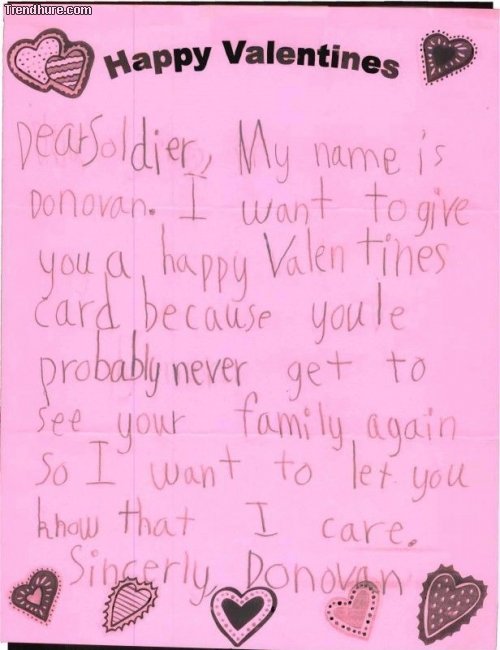 Trendhure.com
Happy Valentines
Dear Soldier, My name is
Donovan. I want to give
you a happy Valentines
card because youle
probably never get to
see your family again
So I want to let you
know that I care.
Sincerly, Donovan